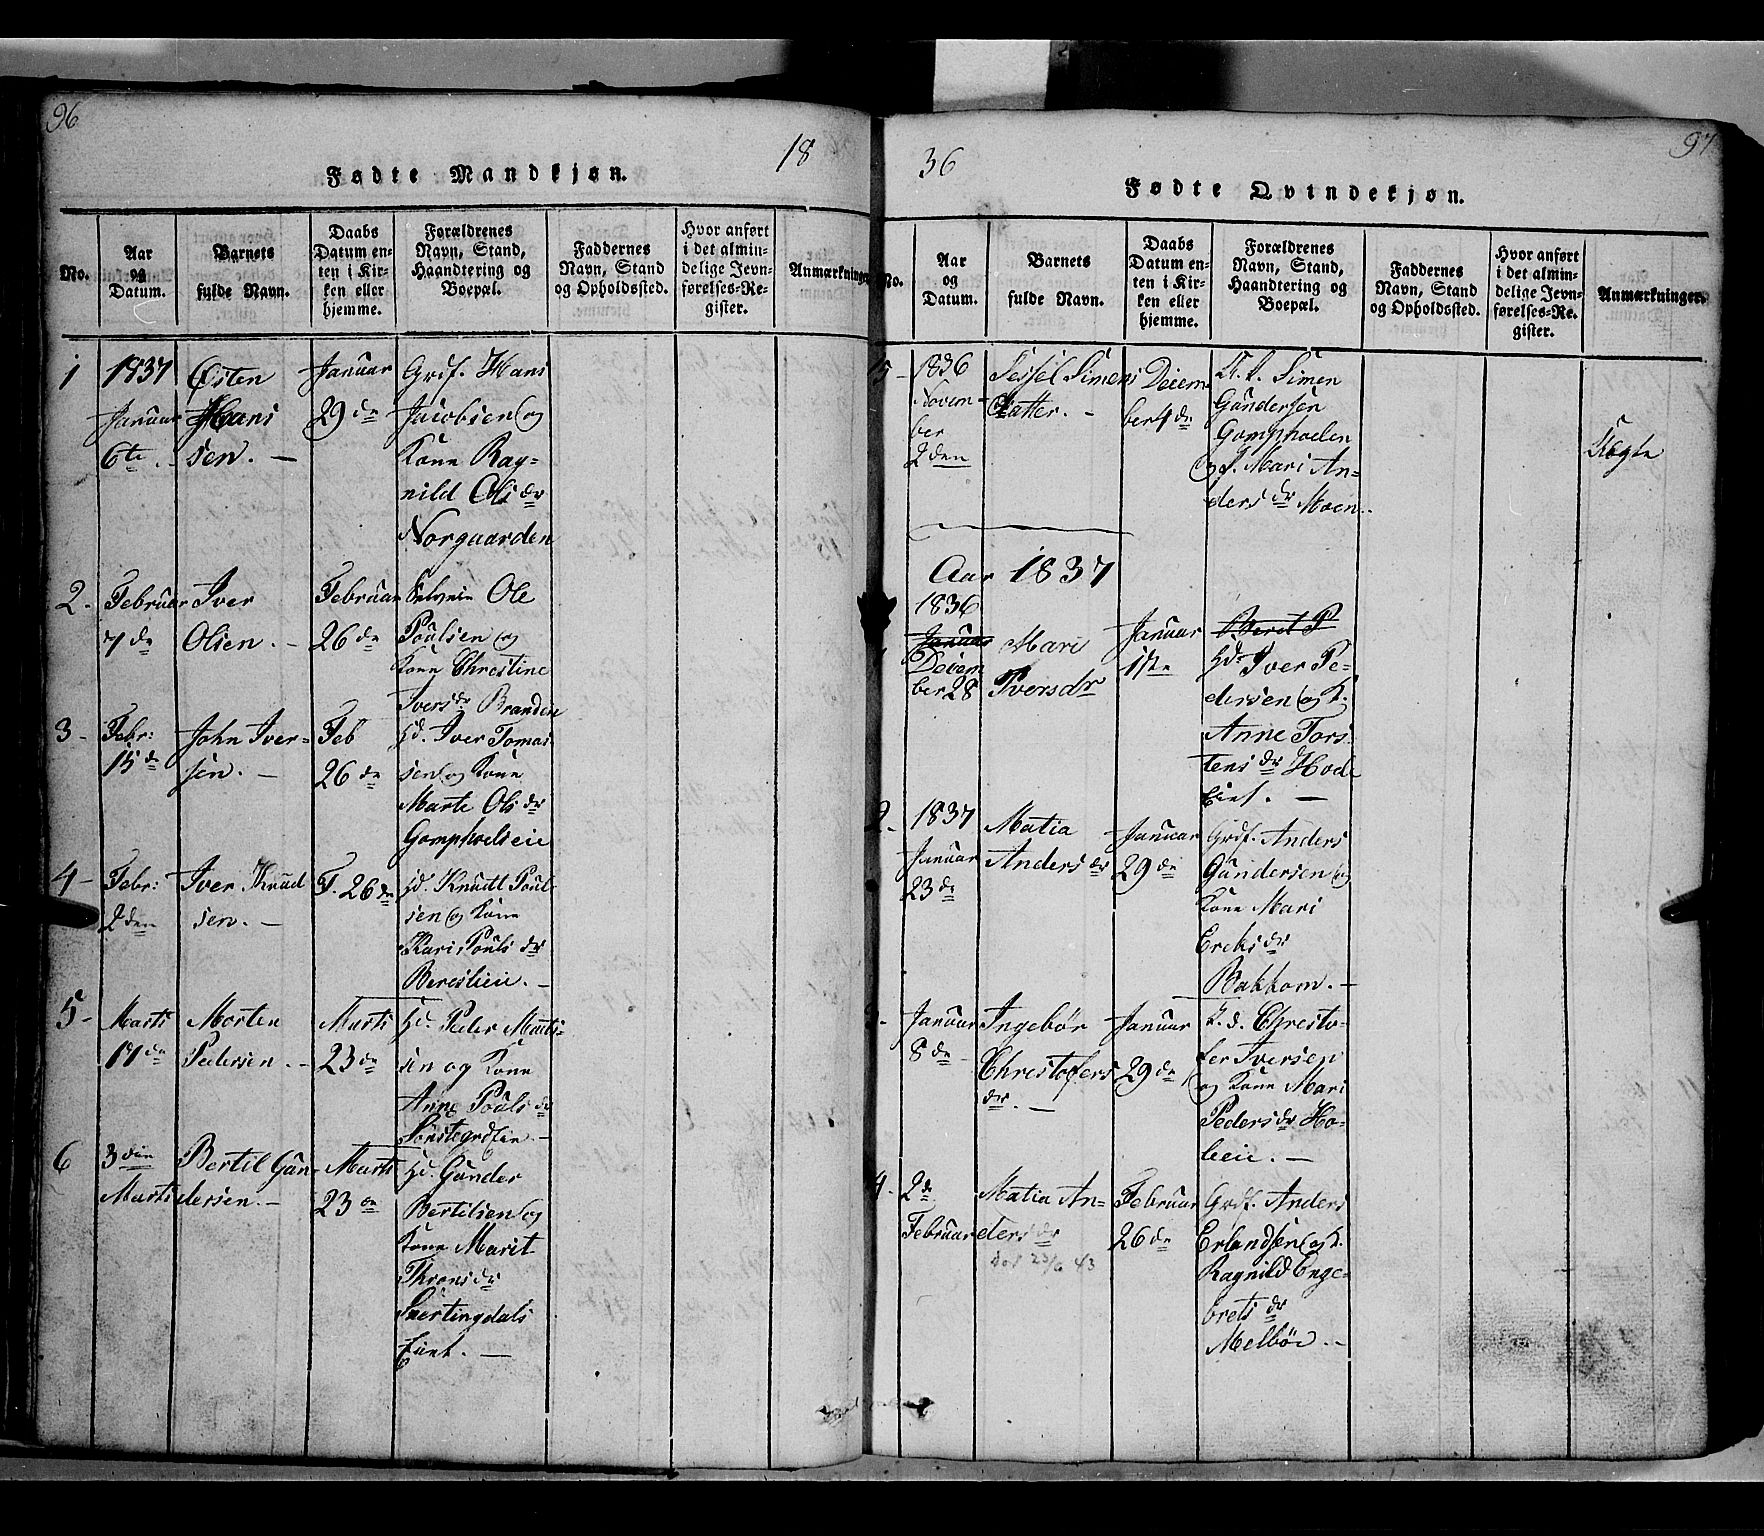 96
18
Fødte Mandkjøn.
No.
Aar
og
Datum.
Barnets
fulde Navn.
Daabs
Datum en-
ten i Kir-
ken eller
hjemme.
Forældrenes
Navn, Stand,
Haandtering og
Boepæl.
Faddernes
Navn, Stand
og Opholdssted.
Hvor anført
i det almin-
delige Jevn-
førelses-Re-
gister.
Anmærkninger
1
1837
Januar
6te
Østen
Hans
sen. —
Januar
29de
Grdf. Hans
Jacobsen og
Kone Rag-
nild Olsdr
Norgaarden
2-
Februar
7de
Iver
Olsen. —
Februar
26de
Ole
Poulsen og
Kone Chrestine
Iversdr Branden
3-
Febr:
15de
John Iver-
sen. —
Feb
26de
Hd. Iver Tomas
sen og Kone
Marte Olsdr
Gomphoelseie
4-
Febr:
2den
Iver Knud
sen. —
F. 26de
Hd. Knudt Poul-
sen og Kone
Kari Poulsdr
Beresleie. —
5-
Marts
17de
Morten
Pedersen. —
Marts
23de
Hd. Peder
sen og Kone
Anne Poulsdr
6
3die
Marts
Bertil Gun-
dersen. —
Marts
23de
Hd. Gunder
Bertilsen og
Kone Marit
Thronsdr
Snertingdals
Eiet. —
36
97
Fødte Qvindekjøn.
No.
Aar
og
Datum.
Barnets
fulde Navn.
Daabs
Datum en-
ten i Kir-
ken eller
hjemme.
Forældrenes
Navn, Stand,
Haandtering og
Boepæl.
Faddernes
Navn, Stand
og Opholdssted.
Hvor anført
i det almin-
delige Jevn-
førelses-Re-
gister.
Anmærkninger.
5-
1836
Novem-
ber
2den
Sessel Simens
Datter. —
Decem-
ber 4de
Simen
Gundersen
Gomphoelen
og P. Mari An-
dersdr Moen.
Uægte
Aar 1837
1836
Januar
Decem
ber 28
Mari
Iversdr
Januar
1ste
Beret P
Hd. Iver Pe-
dersen og K.
Anne Tors-
tensdr Hode
Eiet. —
2-
1837
Januar
23de
Matia
Andersdr
Januar
29de
Grdf. Anders
Gundersen og
Kone Mari
Ereksdr
Bakkom. —
Januar
8de
Ingebør
Chrestofers
dr. —
Januar
29de
Chresto-
fer Iversen
og Kone Mari
Pedersdr Ho-
leeie. —
4-
2de
Februar
Matia An-
dersdr
død 23/6 43
Februar
26de
Grdf. Anders
Erlandsen og K.
Ragnild Enge-
bretsdr
Melbøe. —